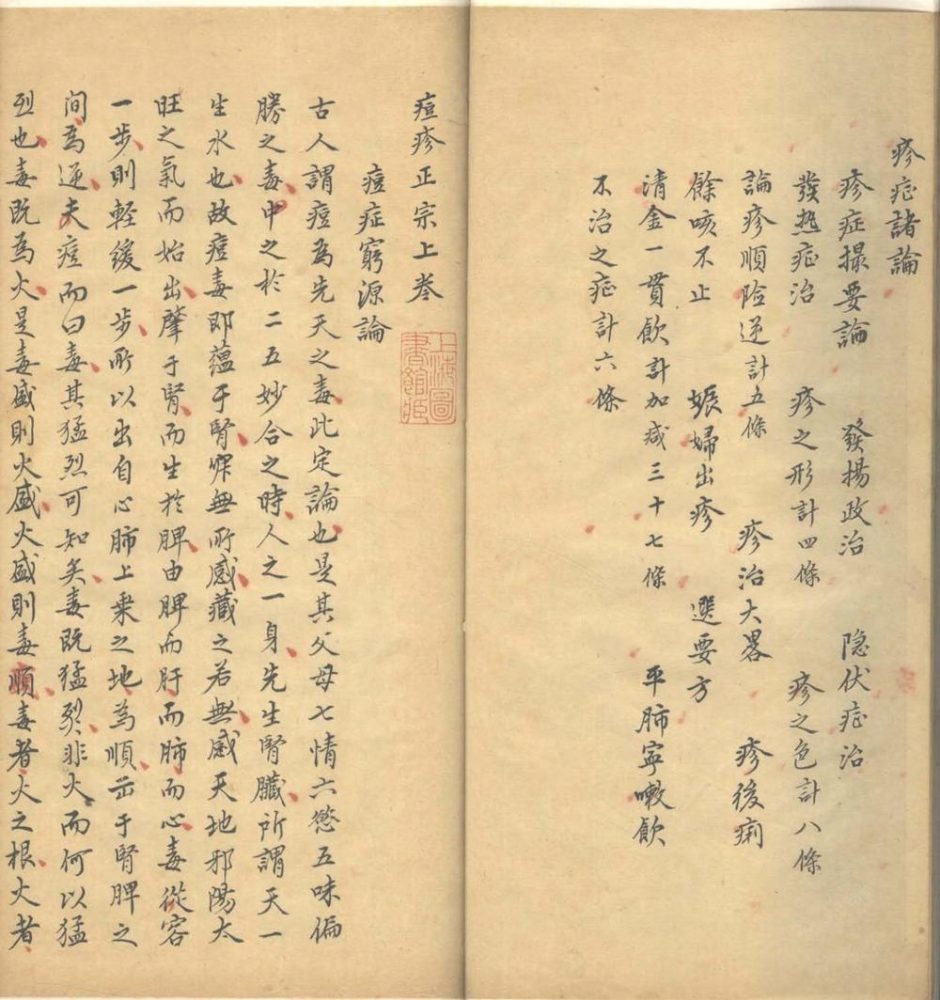 疹症諸論
疹症撮要論 發揚政治 隐伏症治
發热症治 疹之形計四條 疹之色計八條
論疹順险逆計五條 疹治大畧 疹後痢
餘咳不止 娠婦出疹 選要方
清金一貫飲計加咸三十七條 平肺寧嗽飲
不治之症計六條
痘疹正宗上卷
上海圖書館藏
痘症窮源論
古人謂痘為先天之毒此定論也是其父母七情六慾五味偏
勝之毒中之於二五妙合之時人之一身先生腎臟所謂天一
生水也故痘毒即蘊于腎焊無所感藏之若無感天地邪陽太
旺之氣而始出肇于腎而生於脾由脾而肝而肺而心毒從容
一步則軽缓一步所以出自心肺上乗之地為順出于腎脾之
间為逆夫痘而曰毒其猛烈可知矣毒既猛烈非火而何以猛
烈也毒既為火是毒盛則火盛火盛則毒順毒者火之根火者